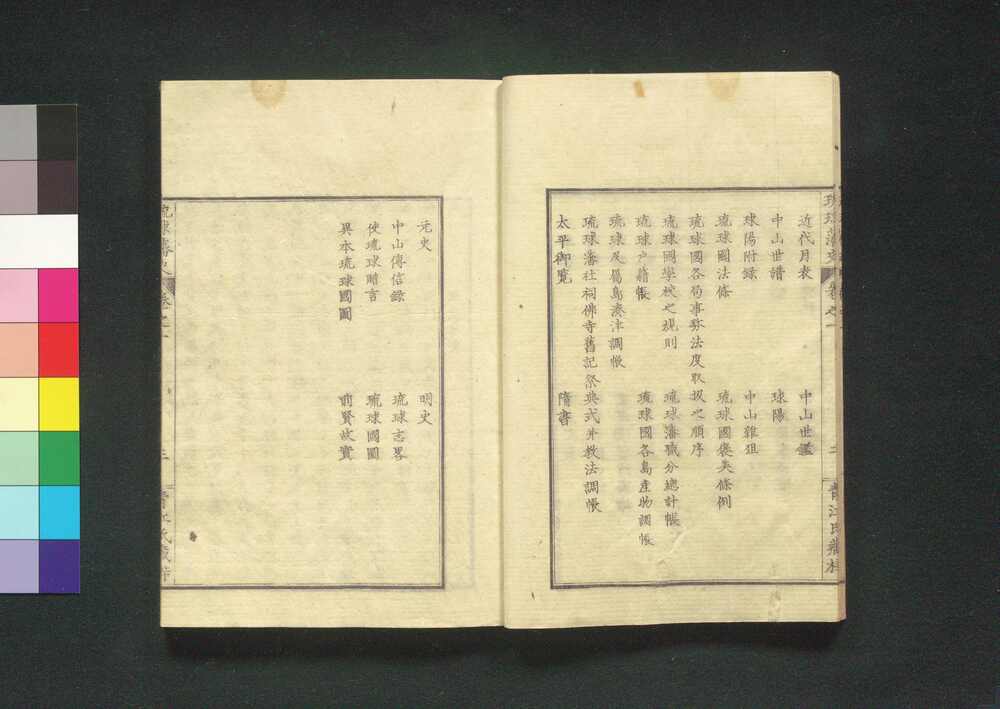 近代月表
中山世鑑
中山世譜
球陽
球陽附録
中山雜狙
琉球國法條
琉球國褒美條例
琉球國各局事務法度取扱之順序
琉球國學校之規則
琉球藩職分總計帳
琉球戸籍帳
琉球國各島産物調帳
琉球及属島湊津調帳
琉球藩社祠佛寺舊記祭典式并教法調帳
太平御覧
隋書
琉球藩史
卷之一
二
青江氏藏梓
元史
明史
中山傳信録
琉球志畧
使琉球贈言
琉球國圖
異本琉球國圖
前賢故實
琉球藩史
卷之一
三
青江氏藏梓